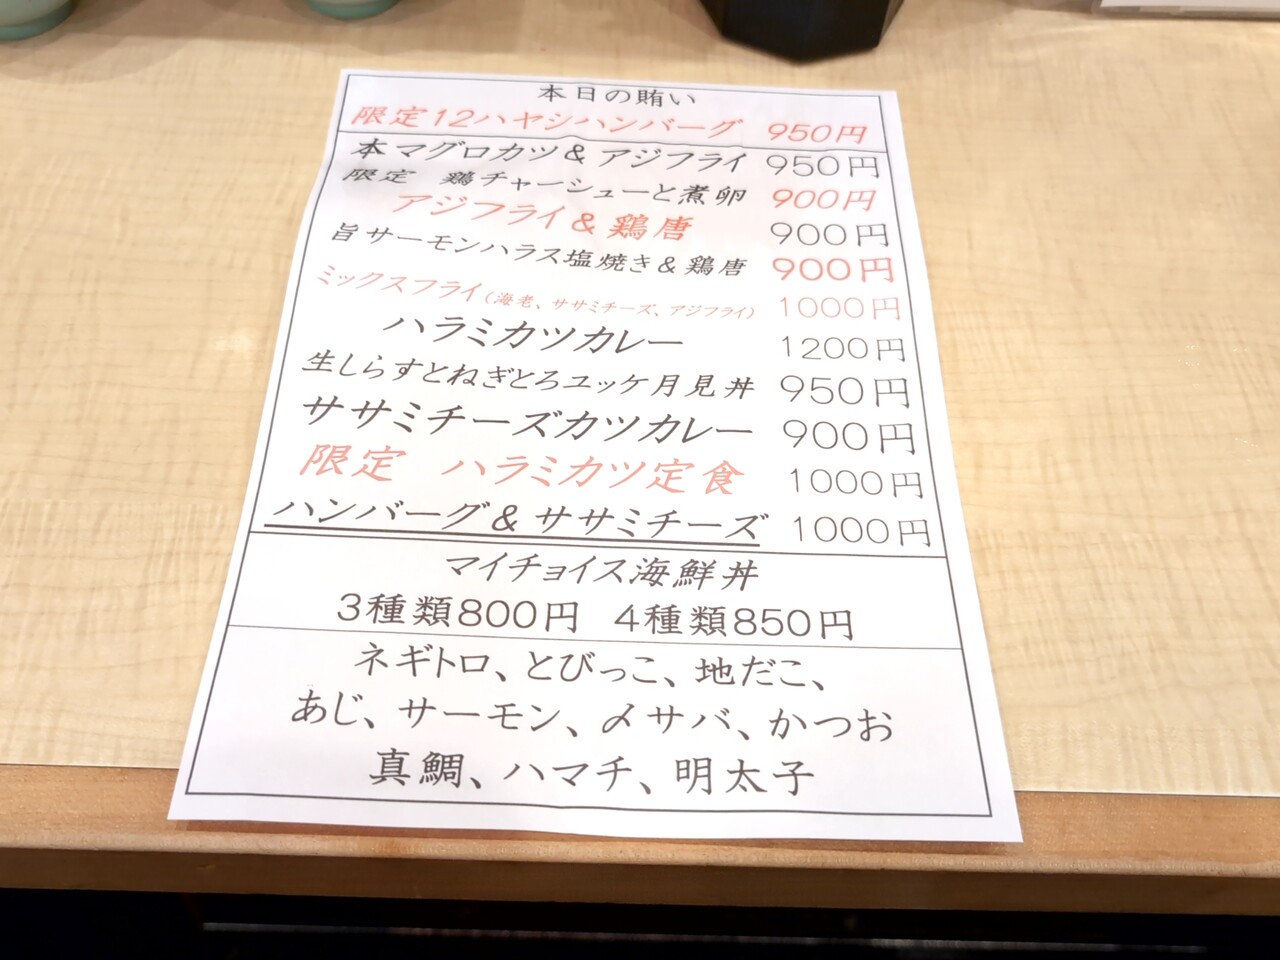 本日の賄い
限定12ハヤシハンバーグ 950円
本マグロカツ＆アジフライ 950円
限定 鶏チャーシューと煮卵 900円
アジフライ＆鶏唐 900円
旨サーモンハラス塩焼き＆鶏唐 900円
ミックスフライ（海老、ササミチーズ、アジフライ） 1000円
ハラミカツカレー 1200円
生しらすとねぎとろユッケ月見丼 950円
ササミチーズカツカレー 900円
限定 ハラミカツ定食 1000円
ハンバーグ＆ササミチーズ 1000円
マイチョイス海鮮丼
3種類800円 4種類850円
ネギトロ、とびっこ、地だこ、
あじ、サーモン、〆サバ、かつお
真鯛、ハマチ、明太子